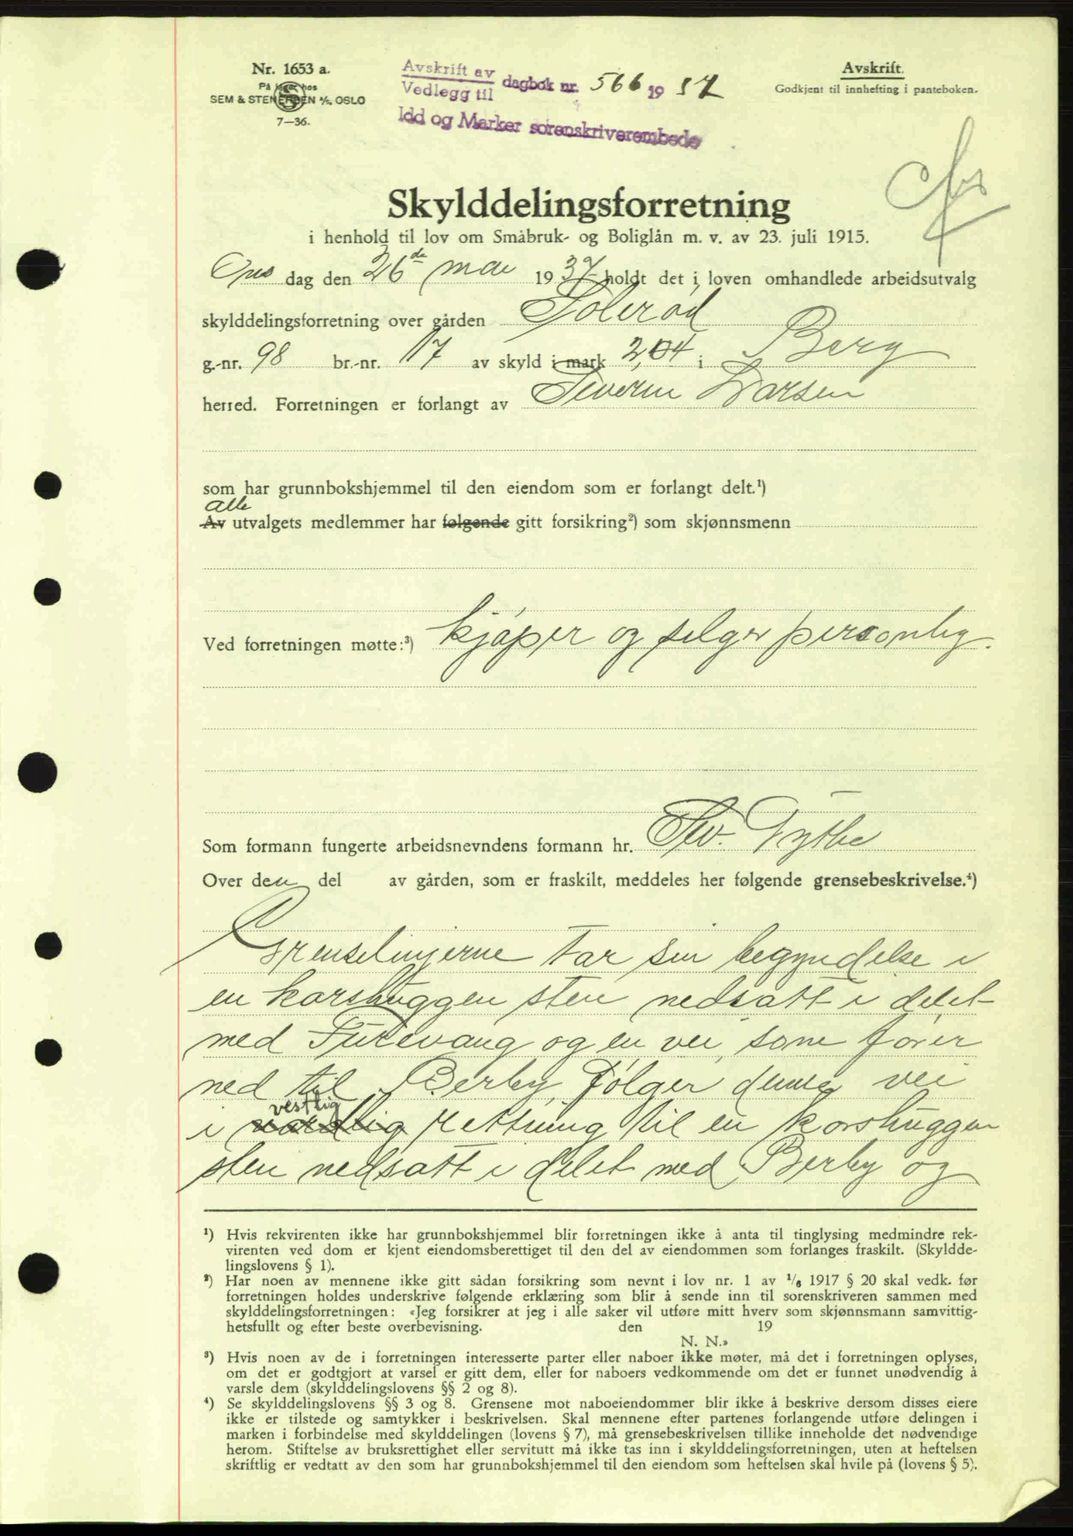 Nr. 1653 a.
På lager hos
SEM & STENERSEN A/S, OSLO
7—36.
Avskrift av
Vedlegg til dagbok nr. 566 1937
Idd og Marker sorenskriverembede
Avskrift.
Godkjent til innhefting i panteboken.
Skylddelingsforretning
i henhold til lov om Småbruk- og Boliglån m. v. av 23. juli 1915.
Ons dag den 26de mai 1937 holdt det i loven omhandlede arbeidsutvalg
skylddelingsforretning over gården Solerød
g.-nr. 98 br.-nr. 17 av skyld i mark 2,04 i Berg
herred. Forretningen er forlangt av Severin Larsen
som har grunnbokshjemmel til den eiendom som er forlangt delt.¹)
alle
Av utvalgets medlemmer har følgende gitt forsikring²) som skjønnsmenn
Ved forretningen møtte:³) kjøper og selger personlig.
Som formann fungerte arbeidsnevndens formann hr. Thv. Gythe
Over den del av gården, som er fraskilt, meddeles her følgende grensebeskrivelse.⁴)
Grenselinjerne tar sin begyndelse i
en korshuggen sten nedsatt i delet
med Furevang og en vei, som fører
ned til Berby, følger denne vei
vestlig
i nordlig rettning til en korshuggen
sten nedsatt i delet med Berby og
¹) Hvis rekvirenten ikke har grunnbokshjemmel blir forretningen ikke å anta til tinglysing medmindre rek-
virenten ved dom er kjent eiendomsberettiget til den del av eiendommen som forlanges fraskilt. (Skyldde-
lingslovens § 1).
²) Har noen av mennene ikke gitt sådan forsikring som nevnt i lov nr. 1 av 1/6 1917 § 20 skal vedk. før
forretningen holdes underskrive følgende erklæring som blir å sende inn til sorenskriveren sammen med
skylddelingsforretningen: «Jeg forsikrer at jeg i alle saker vil utføre mitt hverv som skjønnsmann samvittig-
hetsfullt og efter beste overbevisning. den 19
N. N.»
³) Hvis noen av de i forretningen interesserte parter eller naboer ikke møter, må det i forretningen oplyses,
om det er godtgjort at varsel er gitt dem, eller for naboers vedkommende om det er funnet unødvendig å
varsle dem (skylddelingslovens §§ 2 og 8).
⁴) Se skylddelingslovens §§ 3 og 8. Grensene mot naboeiendommer blir ikke å beskrive dersom disses eiere
ikke er tilstede og samtykker i beskrivelsen. Skal mennene efter partenes forlangende utføre delingen i
marken i forbindelse med skylddelingen (lovens § 7), må grensebeskrivelsen tillike inneholde det nødvendige
herom. Stiftelse av bruksrettighet eller servitutt må ikke tas inn i skylddelingsforretningen, uten at heftelsen
skriftlig er vedtatt av den som har grunnbokshjemmel til den eiendom som heftelsen skal hvile på (lovens § 5).